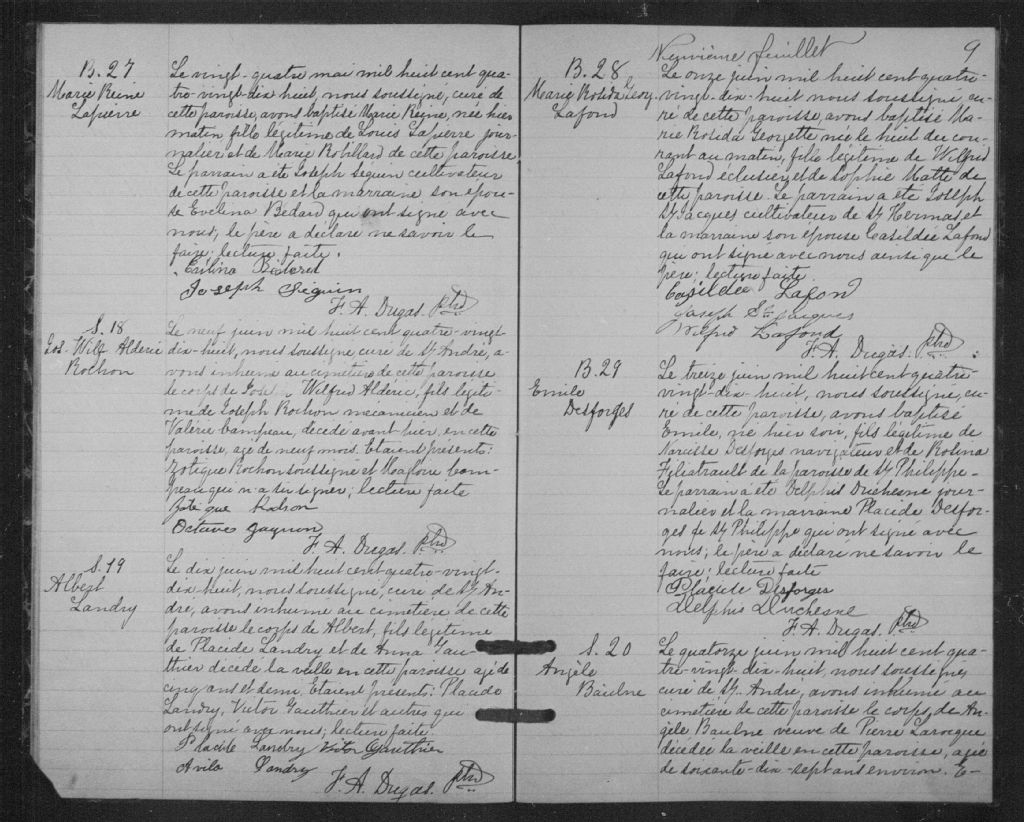 B. 27
Marie Reine
Lapierre
Le vingt-quatre mai mil huit cent qua-
tre-vingt-dix huit, nous soussigné, curé de
cette paroisse, avons baptisé Marie Reine, née hier
matin fille légitime de Louis Lapierre jour-
nalier et de Marie Robillard de cette paroisse.
Le parrain a été Joseph Séguin cultivateur
de cette paroisse et la marraine son épou-
se Evelina Bédard qui ont signé avec
nous, le père a déclaré ne savoir le
faire; lecture faite.
Joseph Séguin
F. A. Dugas. ptre
S. 18
Jos. Wilf. Aldéric
Rochon
Le neuf juin mil huit cent quatre-vingt
dix-huit, nous soussigné curé de St. André, a-
vons inhumé au cimetière de cette paroisse
le corps de Wilfrid Aldéric, fils légiti-
me de Joseph Rochon mécanicien et de
Valérie Campeau, décédé avant hier, en cette
paroisse, agé de neuf mois. Etaient présents:
Zotique Rochon soussigné et Com-
peau qui n'a su signer; lecture faite
Octave Gagnon
F. A. Dugas. ptre
S. 19
Albert
Landry
Le dix juin mil huit cent quatre-vingt-
dix-huit, nous soussigné, curé de St. An-
dré, avons inhumé au cimetière de cette
paroisse le corps de Albert, fils légitime
de Placide Landry et de Anna Gau-
thier décédé la veille en cette paroisse agé de
cinq ans et demi. Etaient présents: Placide
Landry, Victor Gauthier et autres qui
ont signé avec nous; lecture faite.
Placide Landry Victor Gauthier
Avila Landry
F. A. Dugas. ptre
Neuvième feuillet
9
B. 28
Marie Rosida Georg.
Lafond
Le onze juin mil huit cent quatre-
vingt-dix-huit nous soussigné cu-
ré de cette paroisse, avons baptisé Ma-
rie Rosida Georgette née le huit du cou-
rant au matin, fille légitime de Wilfrid
Lafond éclusier et de Sophie Matte de
cette paroisse. Le parrain a été Joseph
St. Jacques cultivateur de St. Hermas et
la marraine son épouse Casildée Lafond
qui ont signé avec nous ainsi que le
père; lecture faite.
Casildée Lafon
Joseph St Jacques
Wilfrid Lafond
F. A. Dugas. ptre
B. 29
Emile
Desforges
Le treize juin mil huit cent quatre
vingt-dix-huit, nous soussigné, cu-
ré de cette paroisse, avons baptisé
Emile, né hier soir, fils légitime de
Narcisse Desforges navigateur et de Rosina
Filiatrault de la paroisse de St. Philippe.
Le parrain a été Delphis Duchesne jour-
nalier et la marraine Placide Desfor-
ges de St. Philippe qui ont signé avec
nous; le père a déclaré ne savoir le
faire; lecture faite
Placide Desforges
Delphis Duchesne
F. A. Dugas. ptre
S. 20
Angèle
Baulne
Le quatorze juin mil huit cent qua-
tre-vingt-dix-huit, nous soussigné
curé de St. André, avons inhumé au
cimetière de cette paroisse le corps de An-
gèle Baulne veuve de Pierre Larocque
décédée la veille en cette paroisse, agée
de soixante-dix-sept ans environ. E-